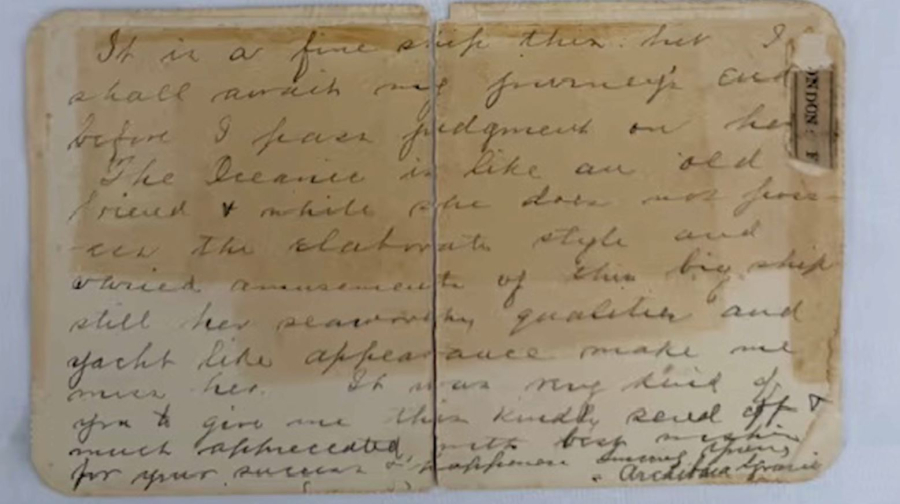 It is a fine ship this. but I
shall await my journey's end
before I pass judgment on her
The Oceanic is like an old
friend & while she does not poss-
-ess the elaborate style and
varied amusements of this big ship
still her seaworthy qualities and
yacht like appearance make me
miss her. It was very kind of
you to give me this kindly send off &
much appreciated with best wishes
for your success & happiness Sincerely yours
Archibald Gracie
ONDON